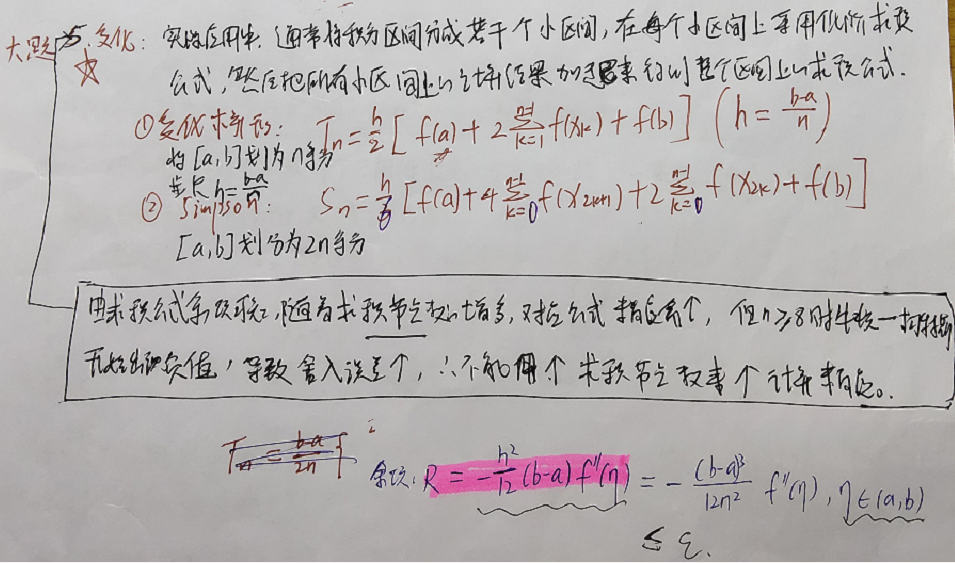 大题 5. 复化：实际应用中，通常将积分区间分成若干个小区间，在每个小区间上采用低阶求积
公式，然后把所有小区间上的计算结果加起来得到整个区间上的求积公式.
①复化梯形： Tn = h/2 [ f(a) + 2 Σ(k=1, n-1) f(xk) + f(b) ] ( h = (b-a)/n )
将[a,b]划为n等分
步长 h = (b-a)/n
② Simpson： Sn = h/6 [ f(a) + 4 Σ(k=0, n-1) f(x2k+1) + 2 Σ(k=0, n-1) f(x2k) + f(b) ]
[a,b]划分为2n等分
由求积公式余项，随着求积节点数的增多，对应公式精度高↑，但n≥8时
开始出现负值，导致舍入误差↑，∴不能用↑求积节点数来↑计算精度。
Tn = (b-a)/2n
余项. R = - h²/12 (b-a) f''(η) = - (b-a)³/12n² f''(η), η∈(a,b)
≤ ε.